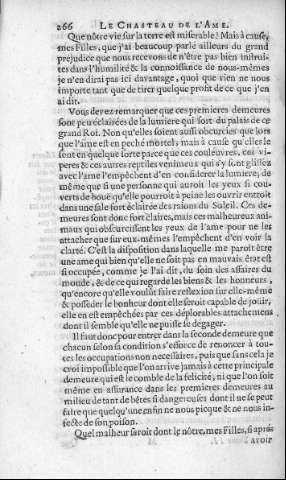 266 LE CHASTEAU DE L'AME.
Que nôtre vie sur la terre est miserable! Mais à cause,
mes Filles, que j'ai beaucoup parlé ailleurs du grand
prejudice que nous recevons de n'être pas bien instrui-
tes dans l'humilité & la connoissance de nous-mêmes
je n'en dirai pas ici davantage, quoi que rien ne nous
importe tant que de tirer quelque profit de ce que j'en
ai dit.
Vous devez remarquer que ces premieres demeures
sont peu éclairées de la lumiere qui sort du palais de ce
grand Roi. Non qu'elles soient aussi obscurcies que lors
que l'ame est en peché mortel, mais à cause qu'elles le
sont en quelque sorte parce que ces couleuvres, ces vi-
peres & ces autres reptiles venimeux qui s'y sont glissez
avec l'ame l'empêchent d'en considerer la lumiere; de
même que si une personne qui auroit les yeux si cou-
verts de bouë qu'elle pourroit à peine les ouvrir entroit
dans une sale fort éclairée des raions du Soleil. Ces de-
meures sont donc fort claires, mais ces malheureux ani-
maux qui obscurcissent les yeux de l'ame pour ne les
attacher que sur eux-mêmes l'empêchent d'en voir la
clarté. C'est la disposition dans laquelle me paroit être
une ame qui bien qu'elle ne soit pas en mauvais êtat est
si occupée, comme je l'ai dit, du soin des affaires du
monde, & de ce qui regarde les biens & les honneurs,
qu'encore qu'elle voulût faire reflexion sur elle-même
& posseder le bonheur dont elle seroit capable de joüir,
elle en est empêchées par ces déplorables attachemens
dont il semble qu'elle ne puisse se degager.
Il faut donc pour entrer dans la seconde demeure que
chacun selon sa condition s'efforce de renoncer à tou-
tes les occupations non necessaires, puis que sans cela je
croi impossible que l'on arrive jamais à cette principale
demeure qui est le comble de la felicité, ni que l'on soit
même en assurance dans les premieres demeures au
milieu de tant de bêtes si dangereuses dont il ne se peut
faire que quelqu'une enfin ne nous picque & ne nous in-
fecte de son poison.
Quel malheur seroit donc le nôtre, mes Filles, si aprés
avoir